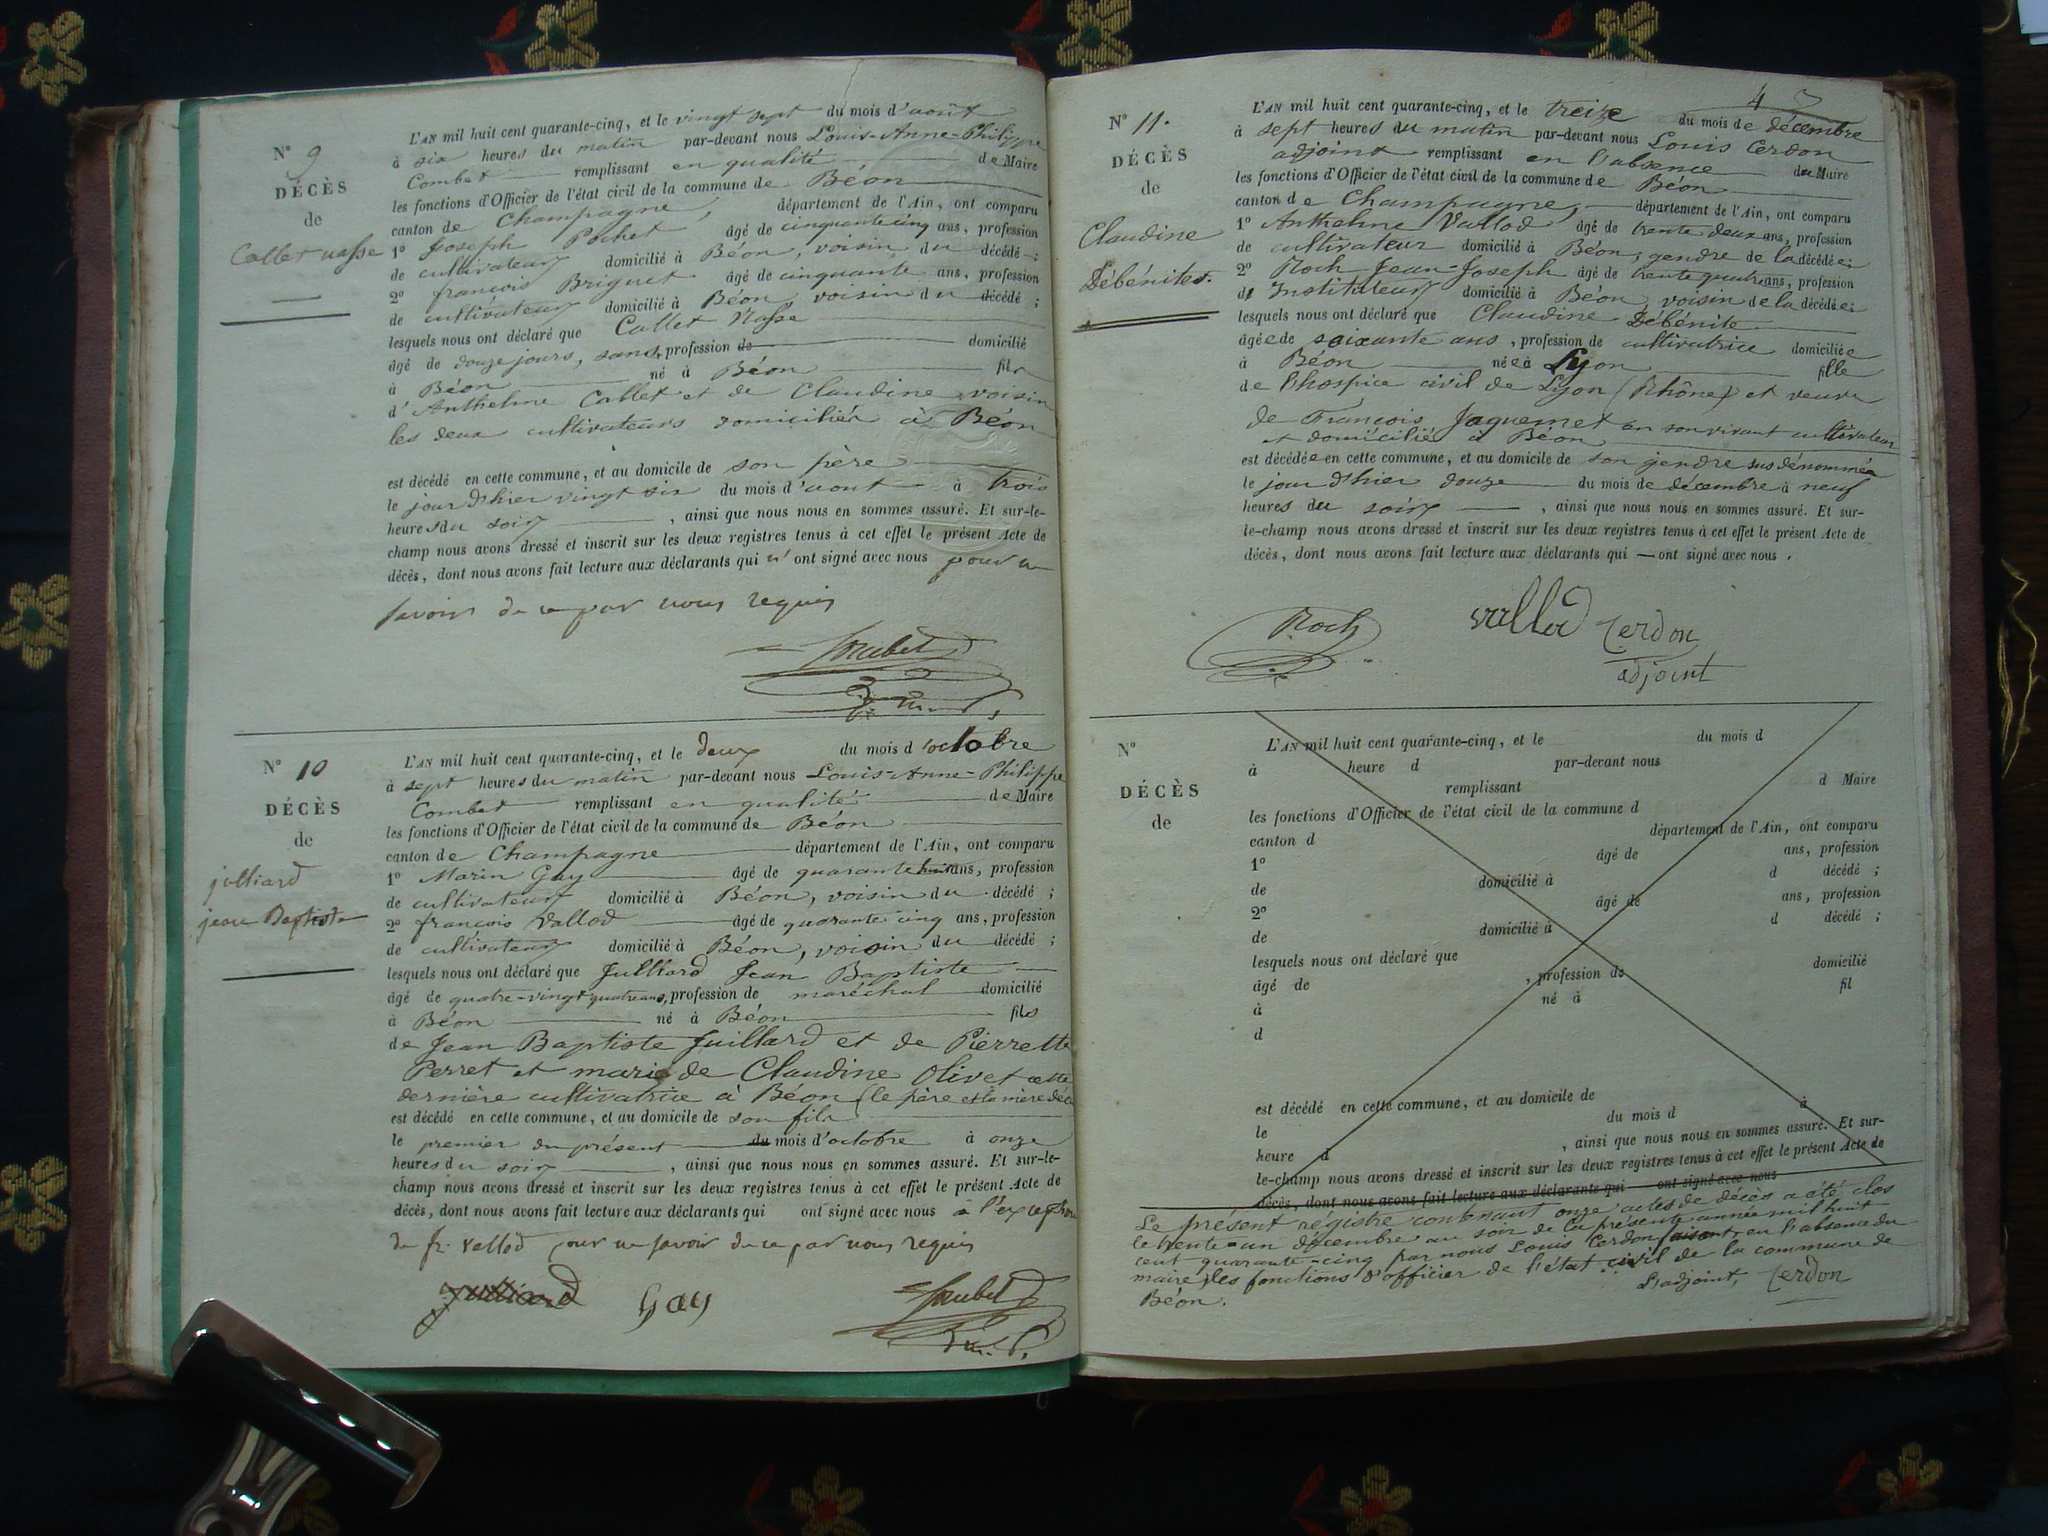 N° 9
DÉCÈS
de
Callet nasse
L'AN mil huit cent quarante-cinq, et le vingt sept du mois d'août
à six heures du matin par-devant nous Louis-Anne-Philippe
Combet remplissant en qualité de Maire
les fonctions d'Officier de l'état civil de la commune de Béon
canton de Champagne, département de l'Ain, ont comparu
1° Joseph Pochet âgé de cinquante cinq ans, profession
de cultivateur domicilié à Béon, voisin du décédé ;
2° françois Briguet âgé de cinquante ans, profession
de cultivateur domicilié à Béon, voisin du décédé ;
lesquels nous ont déclaré que Callet Nasse
âgé de douze jours, sans profession de domicilié
à Béon né à Béon fils
d'Anthelme Callet et de Claudine voisin
les deux cultivateurs domiciliés à Béon
est décédé en cette commune, et au domicile de son père
le jour d'hier vingt six du mois d'aout à trois
heures du soir, ainsi que nous nous en sommes assuré. Et sur-le-
champ nous avons dressé et inscrit sur les deux registres tenus à cet effet le présent Acte de
décès, dont nous avons fait lecture aux déclarants qui n'ont signé avec nous pour ne
savoir de ce par nous requis
N° 10
DÉCÈS
de
julliard
jean Baptiste
L'AN mil huit cent quarante-cinq, et le deux du mois d'octobre
à sept heures du matin par-devant nous Louis-Anne-Philippe
Combet remplissant en qualité de Maire
les fonctions d'Officier de l'état civil de la commune de Béon
canton de Champagne département de l'Ain, ont comparu
1° Marin Guy âgé de quarante huit ans, profession
de cultivateur domicilié à Béon, voisin du décédé ;
2° françois Vallod âgé de quarante cinq ans, profession
de cultivateur domicilié à Béon, voisin du décédé ;
lesquels nous ont déclaré que Julliard Jean Baptiste
âgé de quatre-vingt quatre ans, profession de maréchal domicilié
à Béon né à Béon fils
de Jean Baptiste Juillard et de Pierrette
Perret et marié de Claudine Olivet cette
dernière cultivatrice à Béon (le père et la mère décé
est décédé en cette commune, et au domicile de son fils
le premier du présent du mois d'octobre à onze
heures du soir, ainsi que nous nous en sommes assuré. Et sur-le-
champ nous avons dressé et inscrit sur les deux registres tenus à cet effet le présent Acte de
décès, dont nous avons fait lecture aux déclarants qui ont signé avec nous à l'exception
de fr. Vallod pour ne savoir de ce par nous requis
Julliard Gay
N° 11.
DÉCÈS
de
Claudine
Débénite.
L'AN mil huit cent quarante-cinq, et le treize du mois de décembre
à sept heures du matin par-devant nous Louis Cerdon
adjoint remplissant en l'absence du Maire
les fonctions d'Officier de l'état civil de la commune de Béon
canton de Champagne, département de l'Ain, ont comparu
1° Anthelme Vallod âgé de trente deux ans, profession
de cultivateur domicilié à Béon, gendre de la décédée ;
2° Roch Jean-Joseph âgé de trente quatre ans, profession
d'Instituteur domicilié à Béon, voisin de la décédée ;
lesquels nous ont déclaré que Claudine Débénite
âgée de soixante ans, profession de cultivatrice domiciliée
à Béon née à Lyon fille
de l'hospice civil de Lyon (Rhône) et veuve
de François Jaquemet en son vivant cultivateur
et domicilié à Béon
est décédée en cette commune, et au domicile de son gendre susdénommé
le jour d'hier douze du mois de décembre à neuf
heures du soir, ainsi que nous nous en sommes assuré. Et sur-
le-champ nous avons dressé et inscrit sur les deux registres tenus à cet effet le présent Acte de
décès, dont nous avons fait lecture aux déclarants qui — ont signé avec nous.
Roch Vallod Cerdon
adjoint
N°
DÉCÈS
de
L'AN mil huit cent quarante-cinq, et le du mois d
à heure d par-devant nous
remplissant d Maire
les fonctions d'Officier de l'état civil de la commune d
canton d département de l'Ain, ont comparu
1° âgé de ans, profession
de domicilié à d décédé ;
2° âgé de ans, profession
de domicilié à d décédé ;
lesquels nous ont déclaré que
âgé de , profession de domicilié
à né à fil
d
est décédé en cette commune, et au domicile de
le du mois d à
heure d , ainsi que nous nous en sommes assuré. Et sur-
le-champ nous avons dressé et inscrit sur les deux registres tenus à cet effet le présent Acte de
décès, dont nous avons fait lecture aux déclarants qui ont signé avec nous
Le présent registre contenant onze actes de décès a été clos
le trente-un décembre au soir de la présente année mil huit
cent quarante-cinq par nous Louis Cerdon faisant, en l'absence du
maire, les fonctions d'officier de l'état civil de la commune de
Béon. L'adjoint, Cerdon